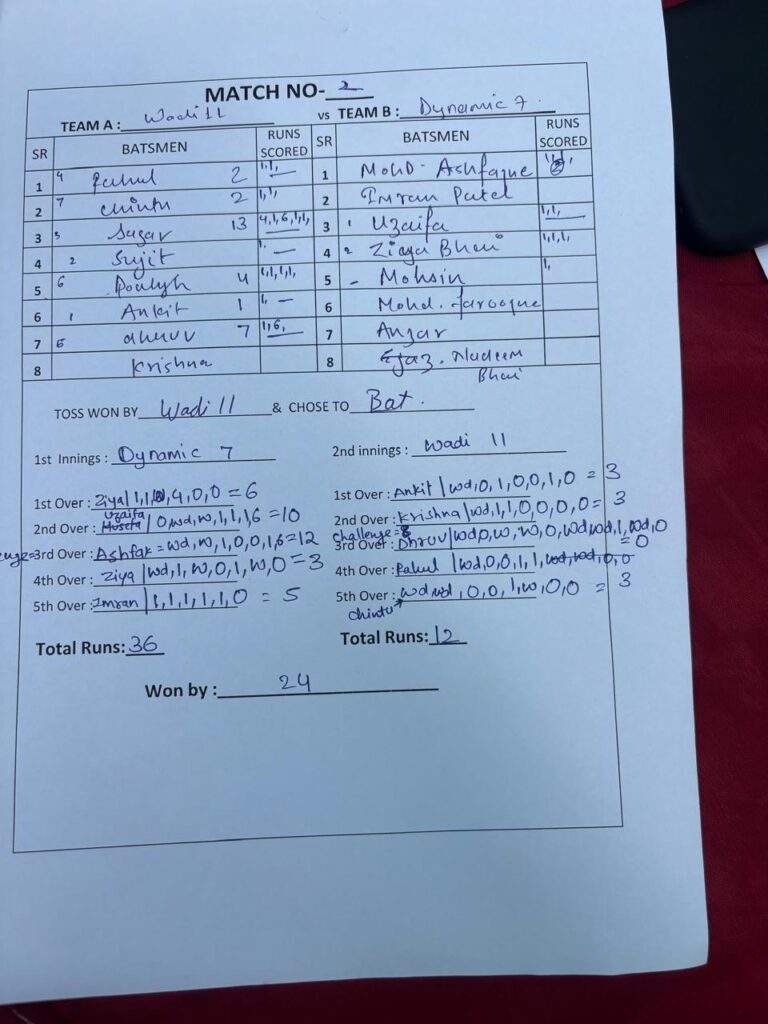 MATCH NO- 2
TEAM A : Wadi 11 vs TEAM B : Dynamic 7
SR BATSMEN RUNS SCORED SR BATSMEN RUNS SCORED
1 4 Rahul 2 1,1, 1 Mohd. Ashfaque
2 7 Chintu 2 1,1, 2 Imran Patel
3 3 Sagar 13 4,1,6,1,1, 3 1 Uzaifa 1,1,
4 2 Sujit 1, 4 2 Ziaya Bhai 1,1,1,
5 6 4 1,1,1,1, 5 - Mohsin 1,
6 1 Ankit 1 1, 6 Mohd. Farooque
7 5 dhruv 7 1,6, 7 Anzar
8 Krishna 8 Ejaz. Nadeem
Bhai
TOSS WON BY Wadi 11 & CHOSE TO Bat.
1st Innings : Dynamic 7 2nd innings : Wadi 11
1st Over : Ziya| 1,1, 4,0,0 = 6 1st Over : Ankit | wd,0,1,0,0,1,0 = 3
Uzaifa
2nd Over : | 0,wd,w,1,1,1,6 = 10 2nd Over : Krishna | wd,1,1,0,0,0,0 = 3
challenge = 8
3rd Over : Ashfak = wd,w,1,0,0,1,6 = 12 3rd Over : Dhruv | wd,0,w,w,0,wd,wd,1,wd,0 = 0
4th Over : Ziya | wd,1,w,0,1,w,0 = 3 4th Over : Rahul | wd,0,0,1,1,wd,wd,0,0
5th Over : Imran | 1,1,1,1,1,0 = 5 5th Over : wd,wd,0,0,1,w,0,0 = 3
chintu
Total Runs: 36 Total Runs: 12
Won by : 24